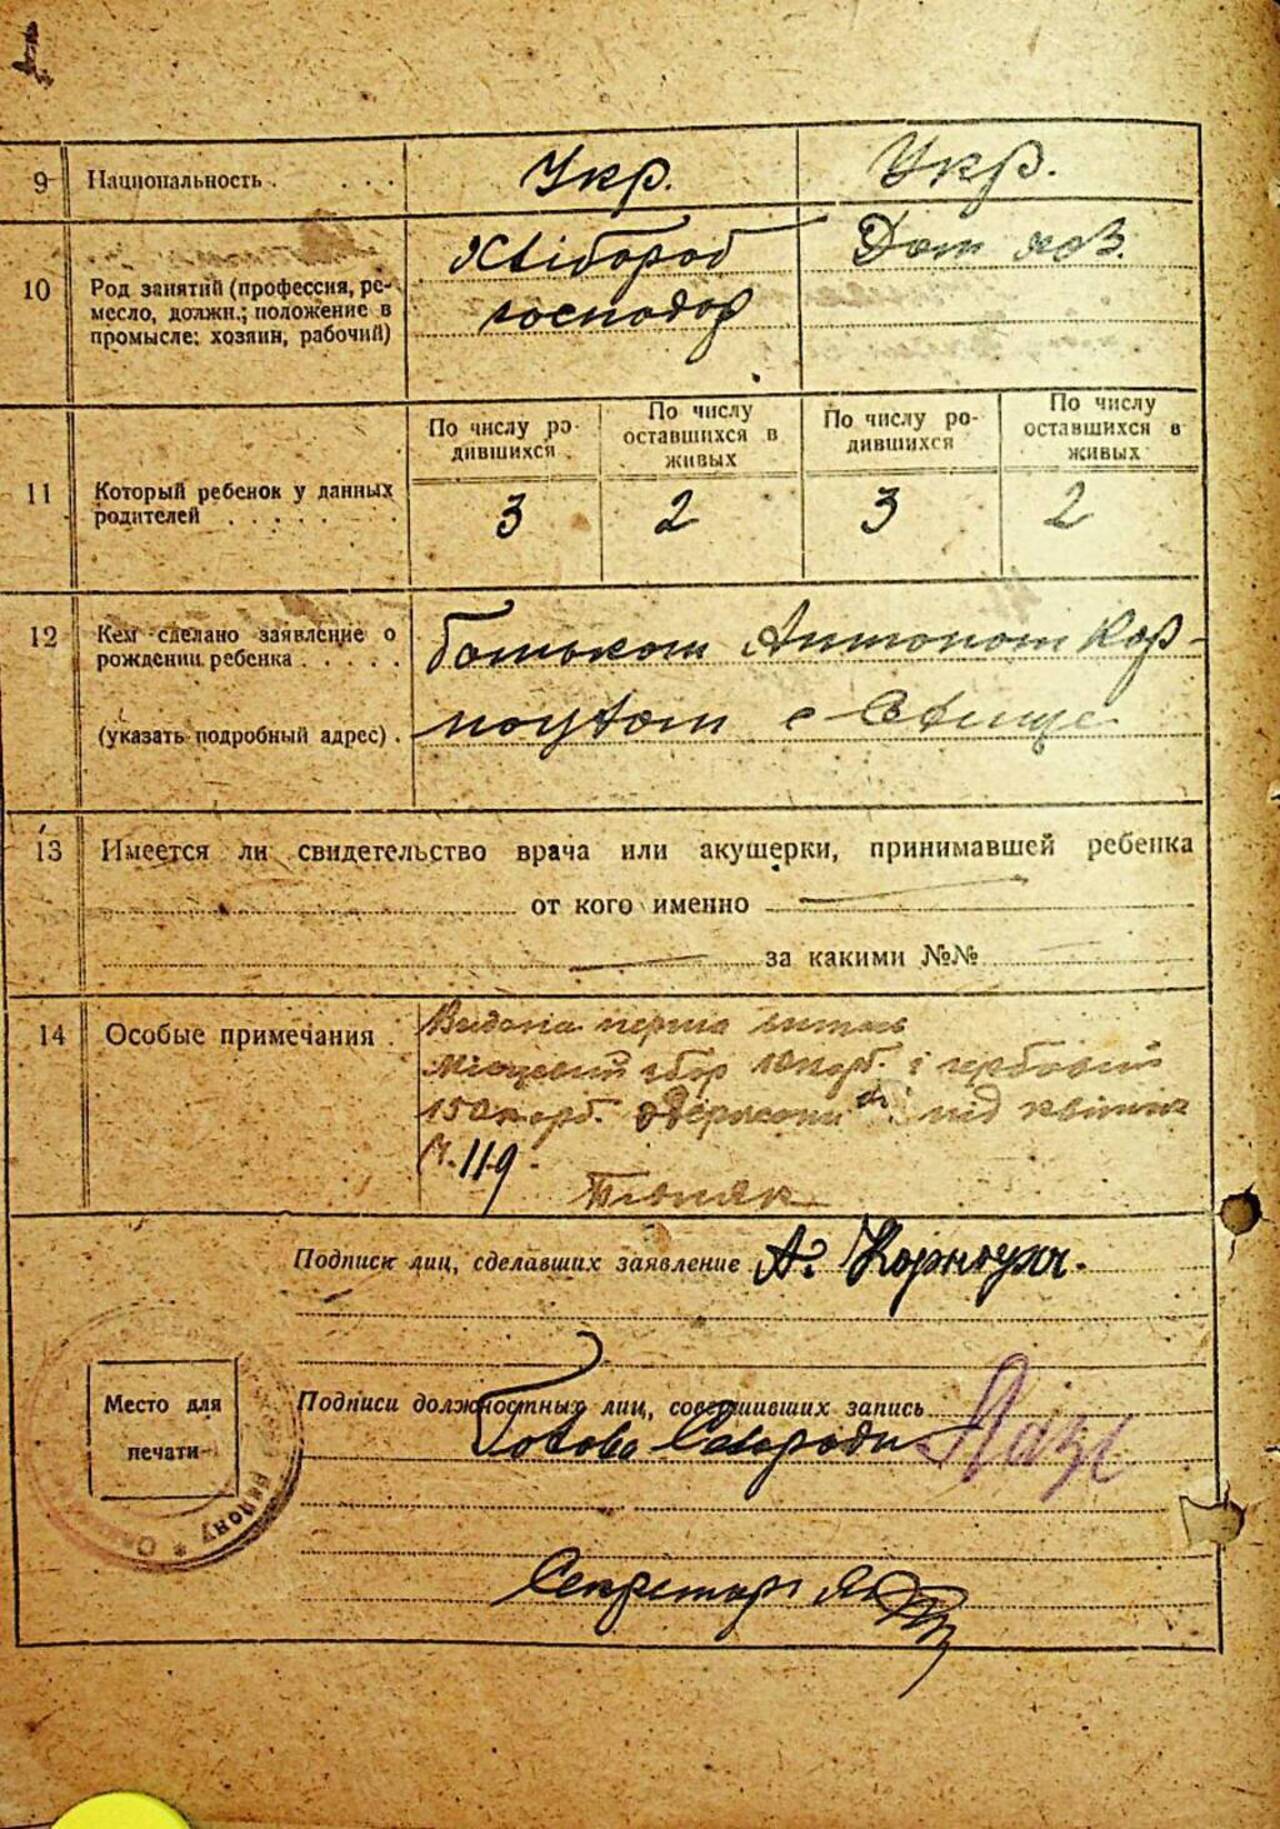 9 Национальность . . . . Укр. Укр.
10 Род занятий (профессия, ре-
месло, должн.; положение в
промысле: хозяин, рабочий)
Хлібороб
господар
Дом хоз.
11 Который ребенок у данных
родителей . . . . .
По числу ро-
дившихся
По числу
оставшихся в
живых
По числу ро-
дившихся
По числу
оставшихся в
живых
3 2 3 2
12 Кем сделано заявление о
рождении ребенка . . . . .
(указать подробный адрес) .
батьком Антоном Кор-
с
13 Имеется ли свидетельство врача или акушерки, принимавшей ребенка
от кого именно
за какими №№
14 Особые примечания .
Видана перша
Місцевий збір і гербовий
під
119
Подписи лиц, сделавших заявление А.
Место для
печати
Подписи должностных лиц, совершивших запись
Голова
Секретар
району * О